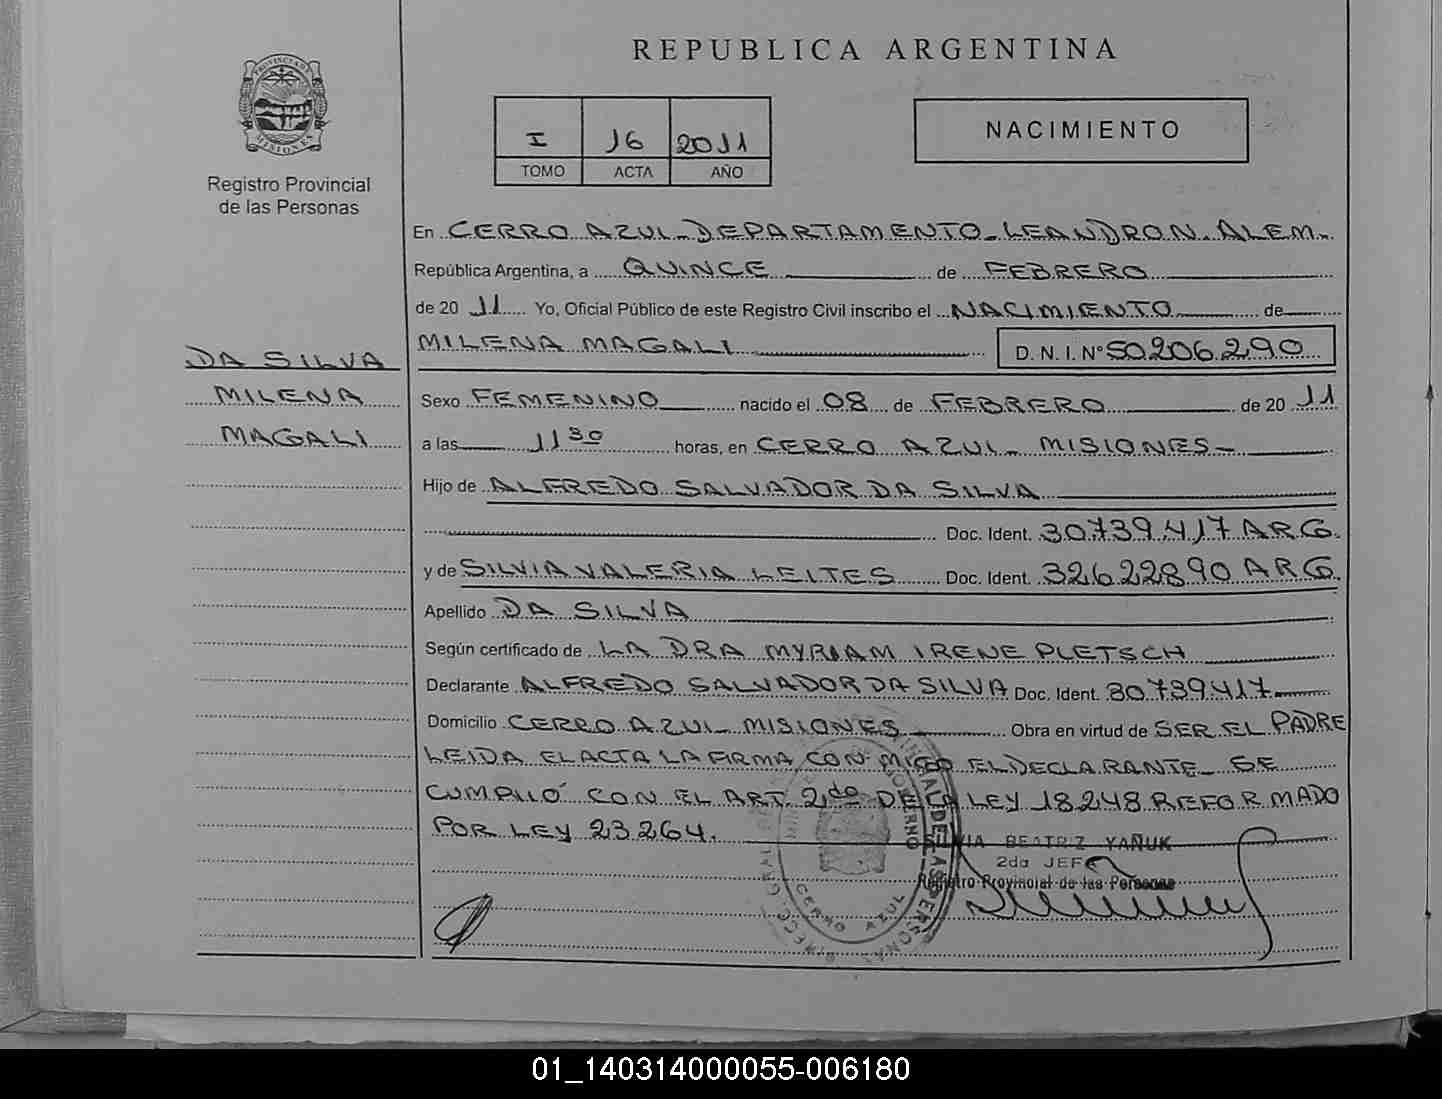 REPUBLICA ARGENTINA
PROVINCIA DE MISIONES
Registro Provincial
de las Personas
I 16 2011
TOMO ACTA AÑO
NACIMIENTO
DA SILVA
MILENA
MAGALI
En CERRO AZUL - DEPARTAMENTO - LEANDRO N. ALEM -
República Argentina, a QUINCE de FEBRERO
de 20 11 Yo, Oficial Público de este Registro Civil inscribo el NACIMIENTO de
MILENA MAGALI D. N. I. Nº 50.206.290
Sexo FEMENINO nacido el 08 de FEBRERO de 20 11
a las 11 30 horas, en CERRO AZUL - MISIONES -
Hijo de ALFREDO SALVADOR DA SILVA
Doc. Ident. 30.739.417 ARG.
y de SILVIA VALERIA LEITES Doc. Ident. 32.622.890 ARG.
Apellido DA SILVA
Según certificado de LA DRA MYRIAM IRENE PLETSCH
Declarante ALFREDO SALVADOR DA SILVA Doc. Ident. 30.739.417
Domicilio CERRO AZUL - MISIONES Obra en virtud de SER EL PADRE
LEIDA EL ACTA LA FIRMA CON MIGO EL DECLARANTE - SE
CUMPLIÓ CON EL ART. 2do DE LA LEY 18.248 REFORMADO
POR LEY 23.264.
SILVIA BEATRIZ YAÑUK
2da JEFE
Registro Provincial de las Personas
CERRO AZUL
01_140314000055-006180